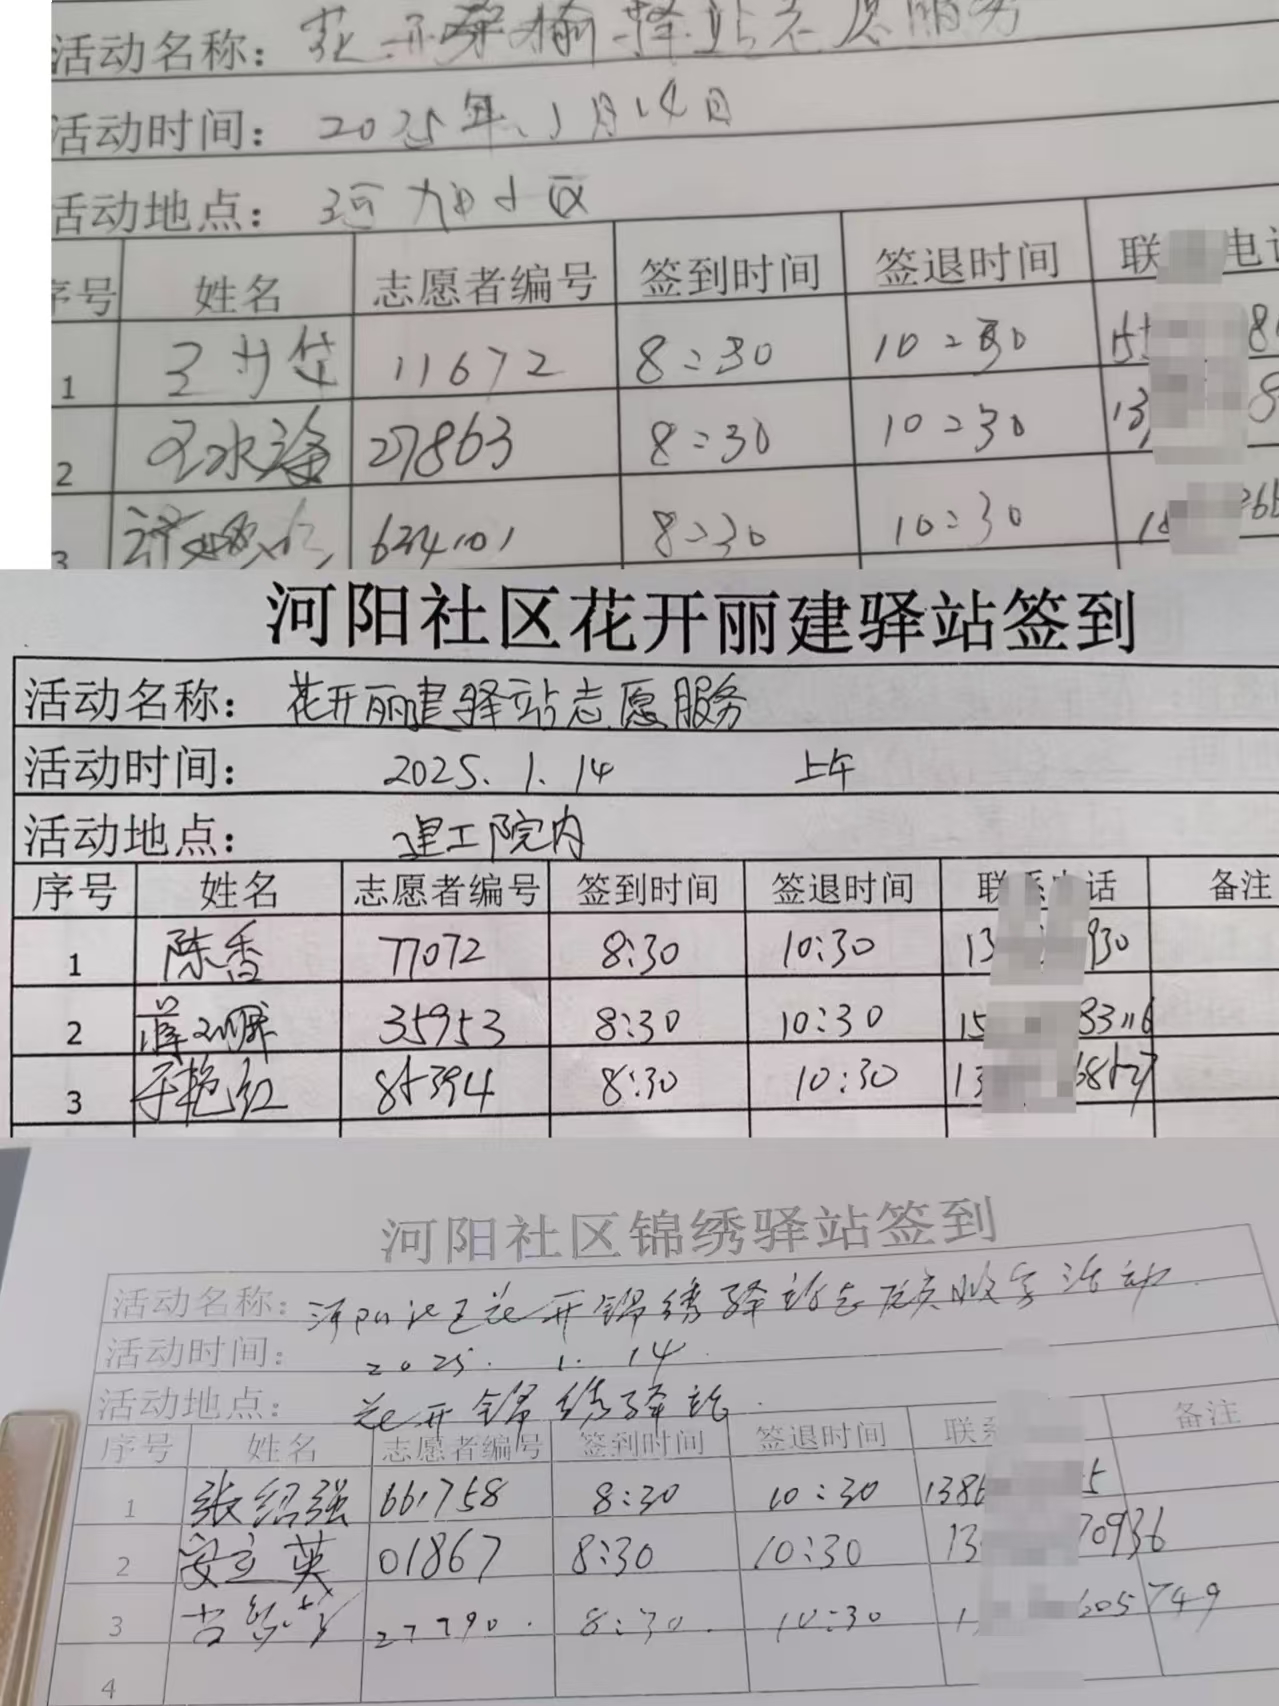 活动名称： 花开桑榆驿站志愿服务
活动时间： 2025年1月14日
活动地点： 河阳小区
序号 姓名 志愿者编号 签到时间 签退时间 联 电话
1 11672 8:30 10:30 15 8
2 27863 8:30 10:30 13 8
3 634101 8:30 10:30
河阳社区花开丽建驿站签到
活动名称： 花开丽建驿站志愿服务
活动时间： 2025.1.14 上午
活动地点： 建工院内
序号 姓名 志愿者编号 签到时间 签退时间 联系电话 备注
1 陈香 77072 8:30 10:30 13 930
2 35953 8:30 10:30 15 83116
3 于艳红 85394 8:30 10:30 13
河阳社区锦绣驿站签到
活动名称： 河阳社区花开锦绣驿站志愿服务活动
活动时间： 2025.1.14
活动地点： 花开锦绣驿站
序号 姓名 志愿者编号 签到时间 签退时间 联系 备注
1 张绍强 661758 8:30 10:30 138 5
2 安立英 01867 8:30 10:30 13 70936
3 27790 8:30 10:30 1 605749
4